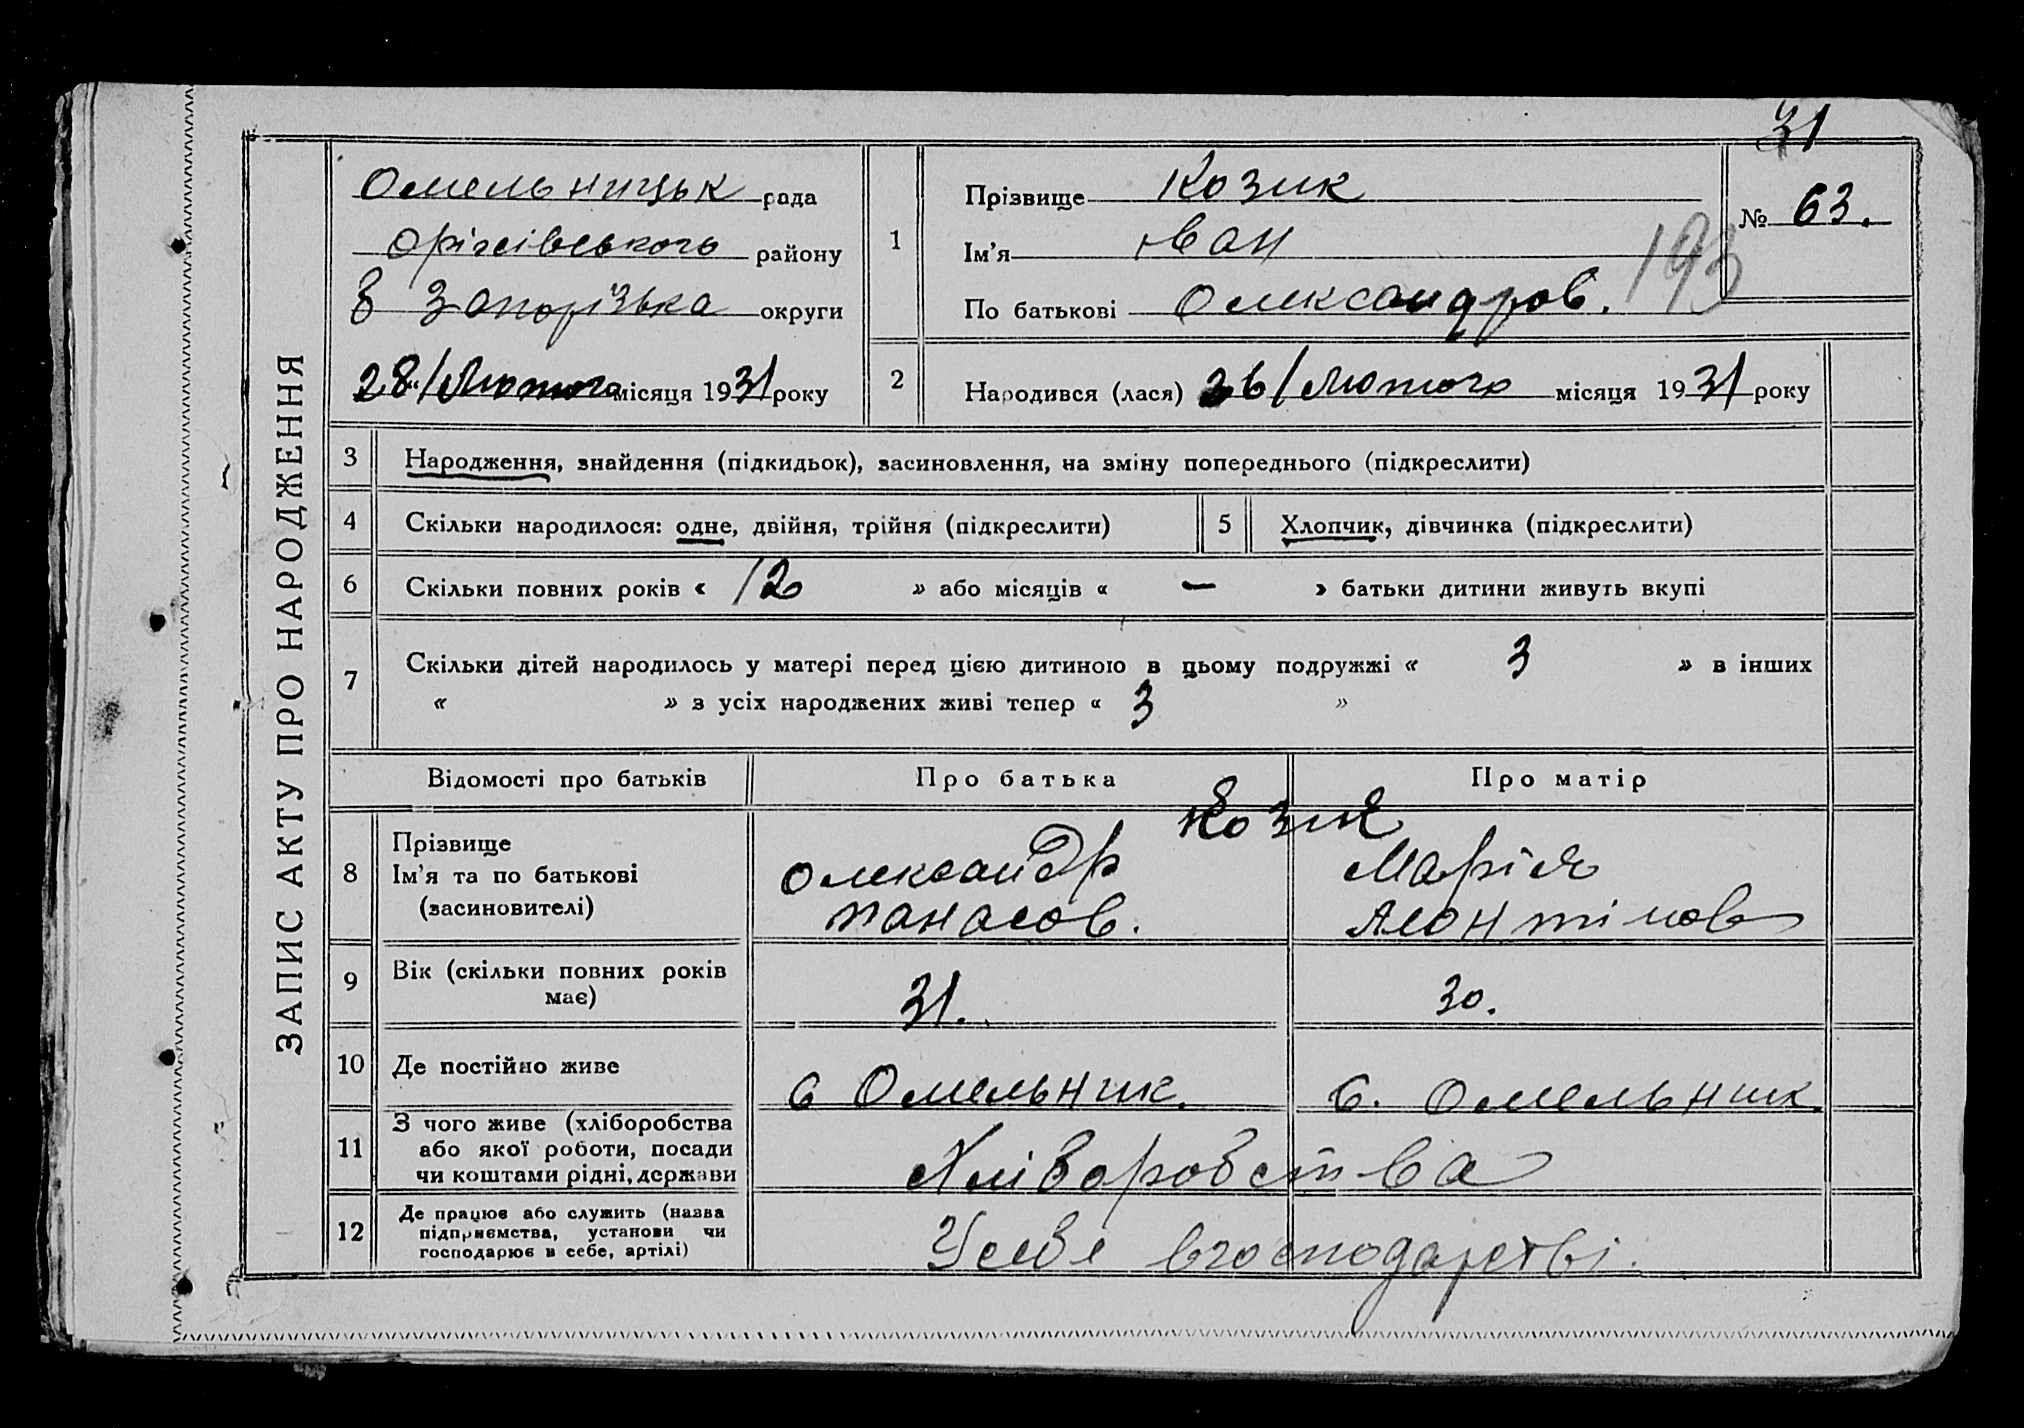 31
ЗАПИС АКТУ ПРО НАРОДЖЕННЯ
Омельницьк рада
Оріхівського району
Запорізька округи
28/Лютого місяця 1931 року
1
Прізвище Козик
Ім’я Іван
По батькові Олександров.
№ 63.
193
2
Народився (лася) 26/Лютого місяця 1931 року
3 Народження, знайдення (підкидьок), засиновлення, на зміну попереднього (підкреслити)
4 Скільки народилося: одне, двійня, трійня (підкреслити)
5 Хлопчик, дівчинка (підкреслити)
6 Скільки повних років « 12 » або місяців « — » батьки дитини живуть вкупі
7 Скільки дітей народилось у матері перед цією дитиною в цьому подружжі « 3 » в інших
« » з усіх народжених живі тепер « 3 »
Відомості про батьків Про батька Про матір
8 Прізвище
Ім’я та по батькові
(засиновителі)
Козик
Олександр
Панасов.
Марія
9 Вік (скільки повних років
має)
31.
30.
10 Де постійно живе
с Омельник.
с. Омельник.
11 З чого живе (хліборобства
або якої роботи, посади
чи коштами рідні, держави
Хліборобства
12 Де працює або служить (назва
підприємства, установи чи
господарює в себе, артілі)
У себе в господарстві.